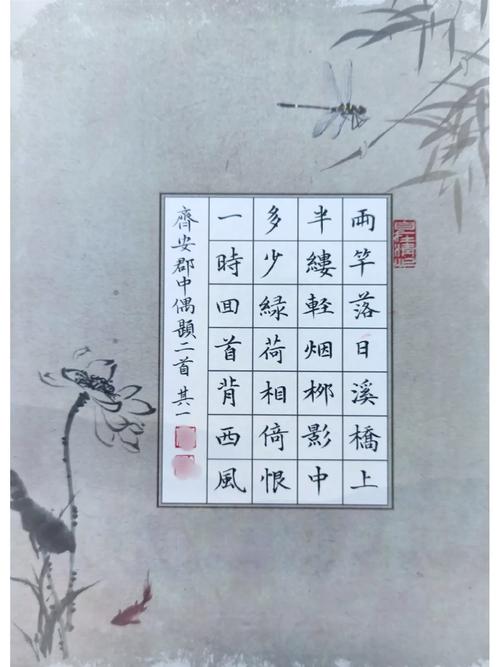 兩竿落日溪橋上
半縷輕烟柳影中
多少緑荷相倚恨
一時回首背西風
齊安郡中偶題二首 其一